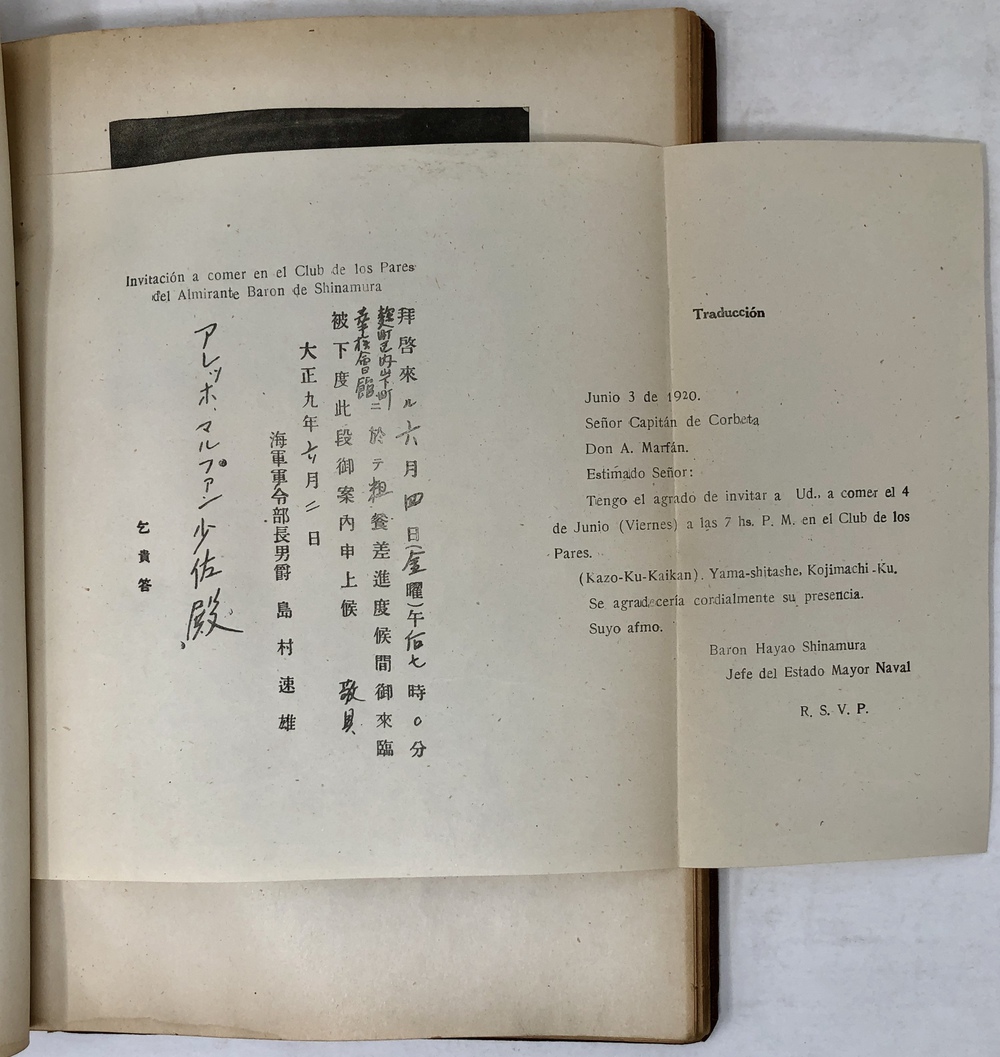 Invitación a comer en el Club de los Pares
del Almirante Baron de Shinamura
拜啓來ル六月四日(金曜)午后七時〇分
麴町區内山下町
華族會舘ニ
於テ粗餐差進度候間御來臨
被下度此段御案内申上候 敬具
大正九年六月二日
海軍軍令部長男爵 島村速雄
アレッホ、マルファン少佐殿
乞貴答
Traducción
Junio 3 de 1920.
Señor Capitán de Corbeta
Don A. Marfán.
Estimado Señor:
Tengo el agrado de invitar a Ud., a comer el 4
de Junio (Viernes) a las 7 hs. P. M. en el Club de los
Pares.
(Kazo-Ku-Kaikan). Yama-shitashe, Kojimachi-Ku.
Se agradecería cordialmente su presencia.
Suyo afmo.
Baron Hayao Shinamura
Jefe del Estado Mayor Naval
R. S. V. P.